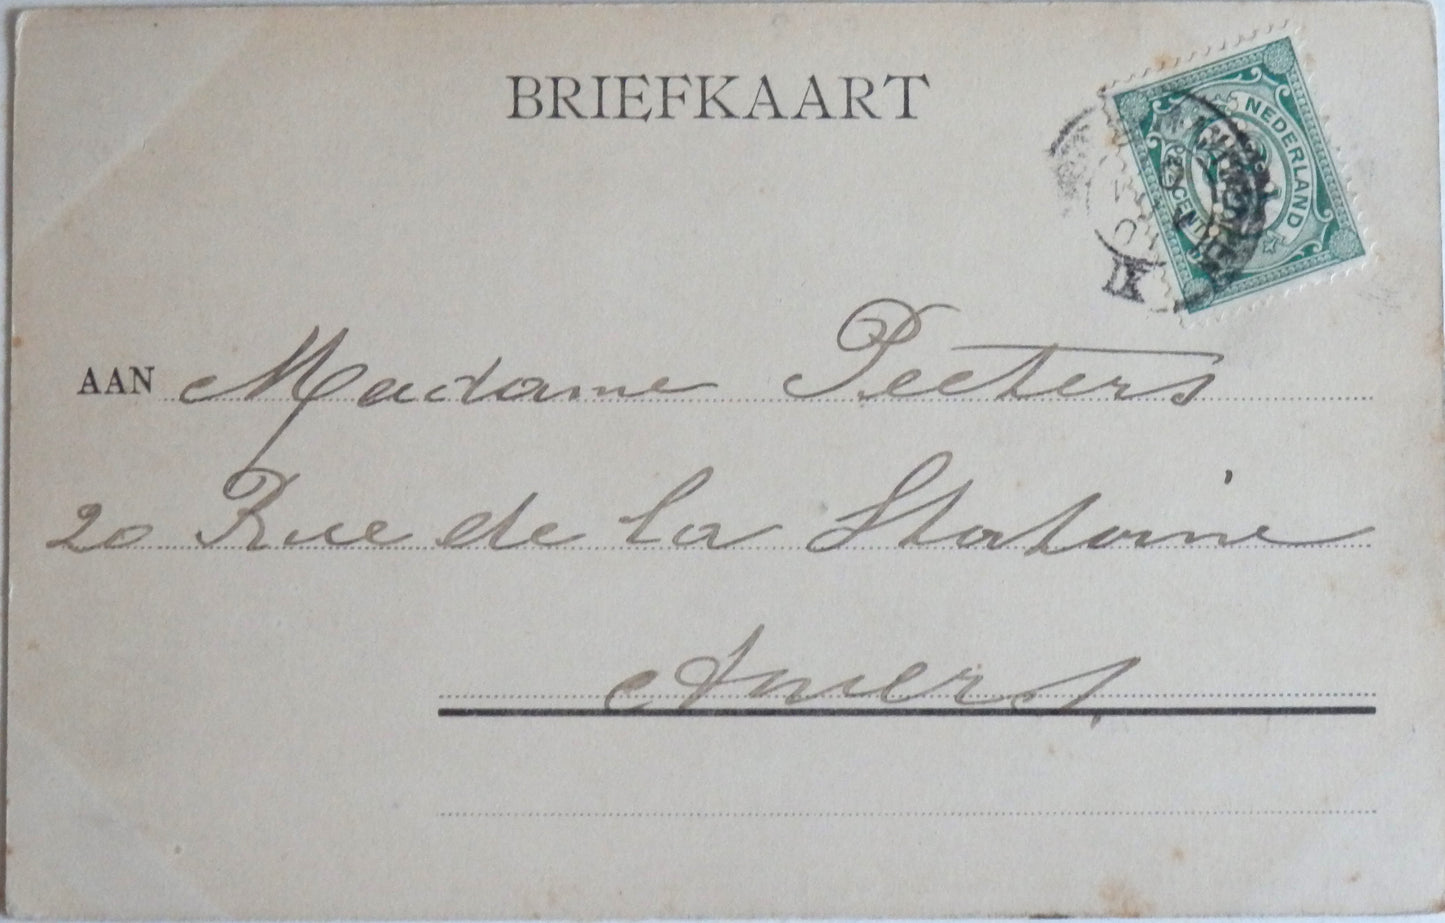 BRIEFKAART
NEDERLAND
CENT
IX
AAN Madame Peeters
20 Rue de la Statuine
Anvers